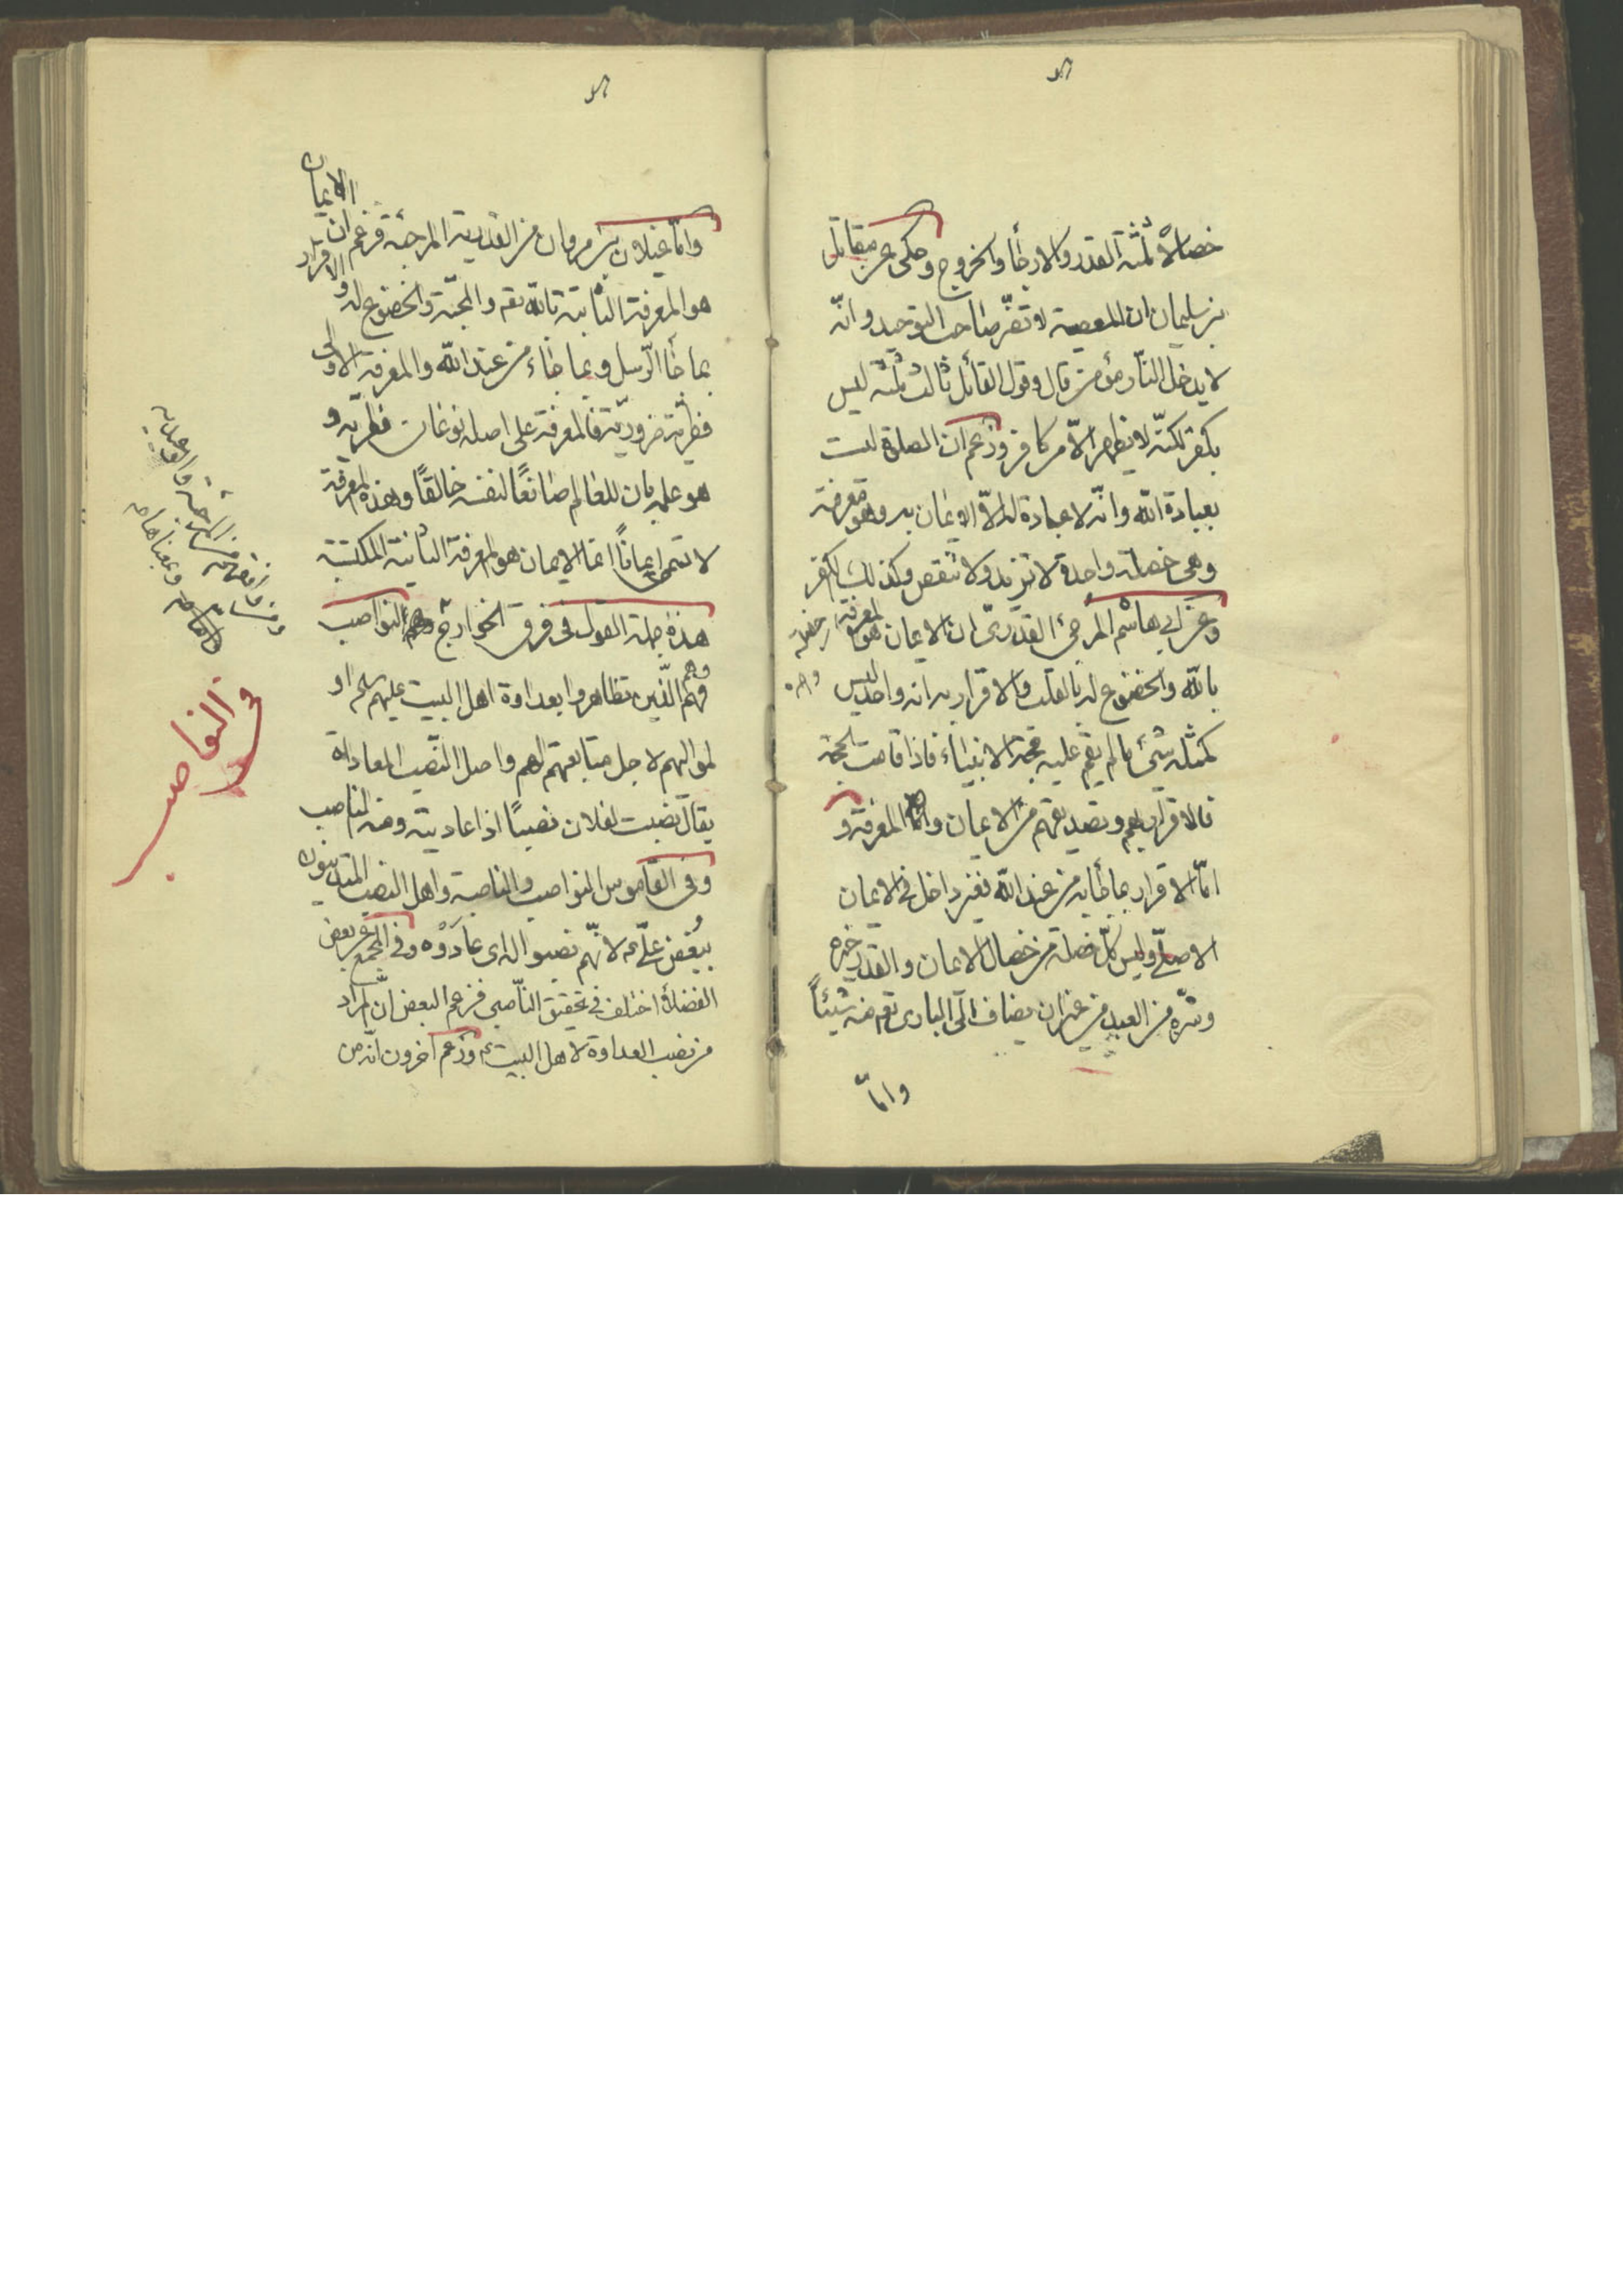 خصالا ثلثة القدر والارجاء والخروج وحكى عن مقاتل
بن سليمان ان المعصية لا تضر صاحب التوحيد وانّه
لا يدخل النّار مؤمن قال وقول القائل ثالث ثلثة ليس
بكفر لكنّه لا يظهر الّا من كافر وزعم ان الصلوة ليست
بعبادة الله وانّه لا عبادة له الّا الايمان به وهو معرفته
وهى خصلة واحدة لا تزيد ولا تنقص وكذلك الكفر
وعن ابى هاشم المرجئ القدرىّ ان الايمان هو المعرفة
بالله والخضوع له بالقلب والاقرار به انه واحد ليس
كمثله شئ ما لم يقم عليه حجة الانبياء فاذا قامت الحجة
فالاقرار بهم وتصديقهم من الايمان وامّا المعرفة و
امّا الاقرار بما جاء به من عند الله فغير داخل فى الايمان
الاصلّى وليس كلّ خصلة من خصال الايمان والقدر خيره
وشرّه من العبد من غير ان يضاف الى البارى تعم منه شيئاً
وامّا
وامّا غيلان بن مروان من القدرية المرجئة فزعم ان الايمان
هو المعرفة الثانية بالله تعم والمحبّة والخضوع له والاقرار
بما جاء الرّسل وبما جاء من عند الله والمعرفة الاولى
فطريّة ضروريّة فالمعرفة على اصله نوعان فطرية و
هو علمه بان للعالم صانعًا لنفسه خالقًا وهذه المعرفة
لا تسمى ايمانًا انما الايمان هو المعرفة الثانية المكتسبة
هذه جملة القول فى فرق الخوارج النواصب
وهم
فهم الّذين تظاهروا بعداوة اهل البيت عليهم سلم او
لمواليهم لاجل متابعتهم لهم واصل النّصب المعاداة
يقال نصبت لفلان نصبًا اذا عاديته ومنه الناصب
وفى القاموس النواصب والناصبة واهل النصب المتدينون
ببُغض علّى ع لانّهم نصبوا له اى عادَوْه وفى المجمع عن بعض
الفضلاء اختلف فى تحقيق النّاصبى فزعم البعض انّ المراد
من نصب العداوة لاهل البيت ع وزعم اخرون انّه من
فى النواصب